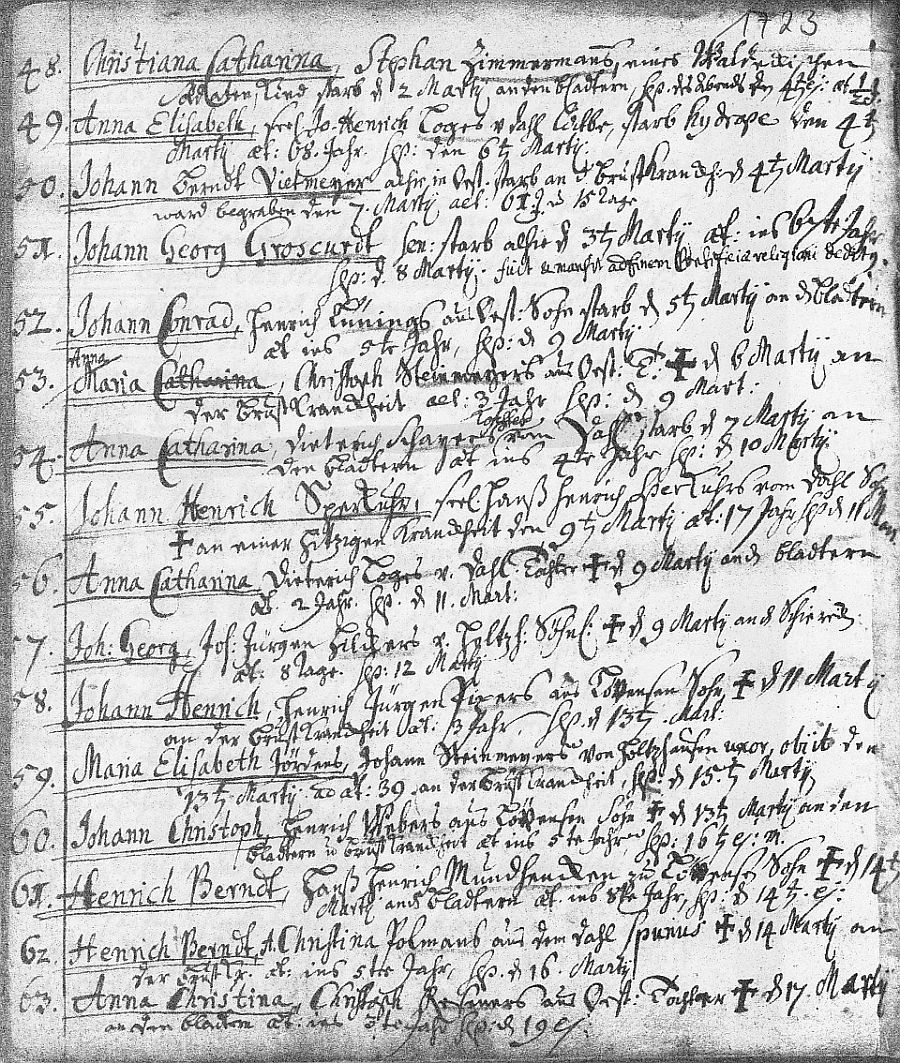 1723
48. Christiana Catharina, Stephan Zimmermans, eines Waldeckischen
Soldaten Kind starb d 2 Martÿ an den bladtern, sep: des abends den
49. Anna Elisabeth, seel. Jo. Henrich Loges v. dahl witbe, starb hydrope den 4t
Martÿ æt: 68. Jahr. sep: den 6t Martÿ.
50. Johann Berndt Vietmeyer alhie in Oest. starb an d brustkranckh: d 4t Martÿ
ward begraben den 7. Martÿ aet: 61 15 tage
51. Johann Georg Groscurdt sen: starb alhie d 3t Martÿ æt: ins Jahr
sep: d. 8 Martÿ. fuit religioni
52. Johann Conrad, Henrich Lünings aus Oest: Sohn starb d 5t Martÿ an d bladtern
æt ins 5te Jahr, sep: d 9 Martÿ
Anna
53. Maria Catharina, Christoph Steinmeyers aus Oest: T. ✝ d 6 Martÿ an
der brustkranckheit aet: 3 Jahr sep: d 9 Mart:
Tochter
54. Anna Catharina, Dieterich Schapers vom Dahl starb d 7 Martÿ an
den bladtern æt ins 4te Jahr sep: d 10 Martÿ
55. Johann Henrich Sperkuhr, seel. Hanß Henrich Sperkuhrs vom Dahl Sohn
✝ an einer hitzigen Kranckheit den 9t Martÿ æt: 17 Jahr sep d 11 Mart
56. Anna Catharina Dieterich Loges v. Dahl Tochter ✝ d 9 Martÿ an d bladtern
æt. 2 Jahr. sep. d 11. Mart:
57. Joh: Georg, Joh: Jürgen Hilders v. Holtzh: Söhnl: ✝ d 9 Martÿ an d
æt: 8 tage. sep: 12 Martÿ
58. Johann Henrich, Henrich Jürgen Pipers aus Löwensen Sohn ✝ d 11 Martÿ
an der brustkranckheit æt: 3 Jahr, sep. d 13t. Mart:
59. Maria Elisabeth Jördens, Johann Steinmeyers von Holtzhausen uxor, obiit den
13t Martÿ æt: 39 an der brustkranckheit, sep: d 15t Martÿ
60. Johann Christoph, Henrich Webers aus Löwensen Sohn ✝ d 13t Martÿ an den
bladtern u brustkranckheit æt ins 5te Jahr, sep: 16t ej: m.
61. Henrich Berndt, Hanß Henrich Mundhencken zu Löwensen Sohn ✝ d 14t
Martÿ an d bladtern æt. ins Jahr, sep: d 14t. ej:
62 Henrich Berndt, A. Christina Polmans aus dem dahl spurius ✝ d 14 Martÿ an
der brustkr. æt: ins 5te Jahr, sep. d 16 Martÿ
63. Anna Christina, Christoph aus Oest: Tochter ✝ d 17. Martÿ
an den bladtern æt: ins 3te Jahr sep: d 19 ej: